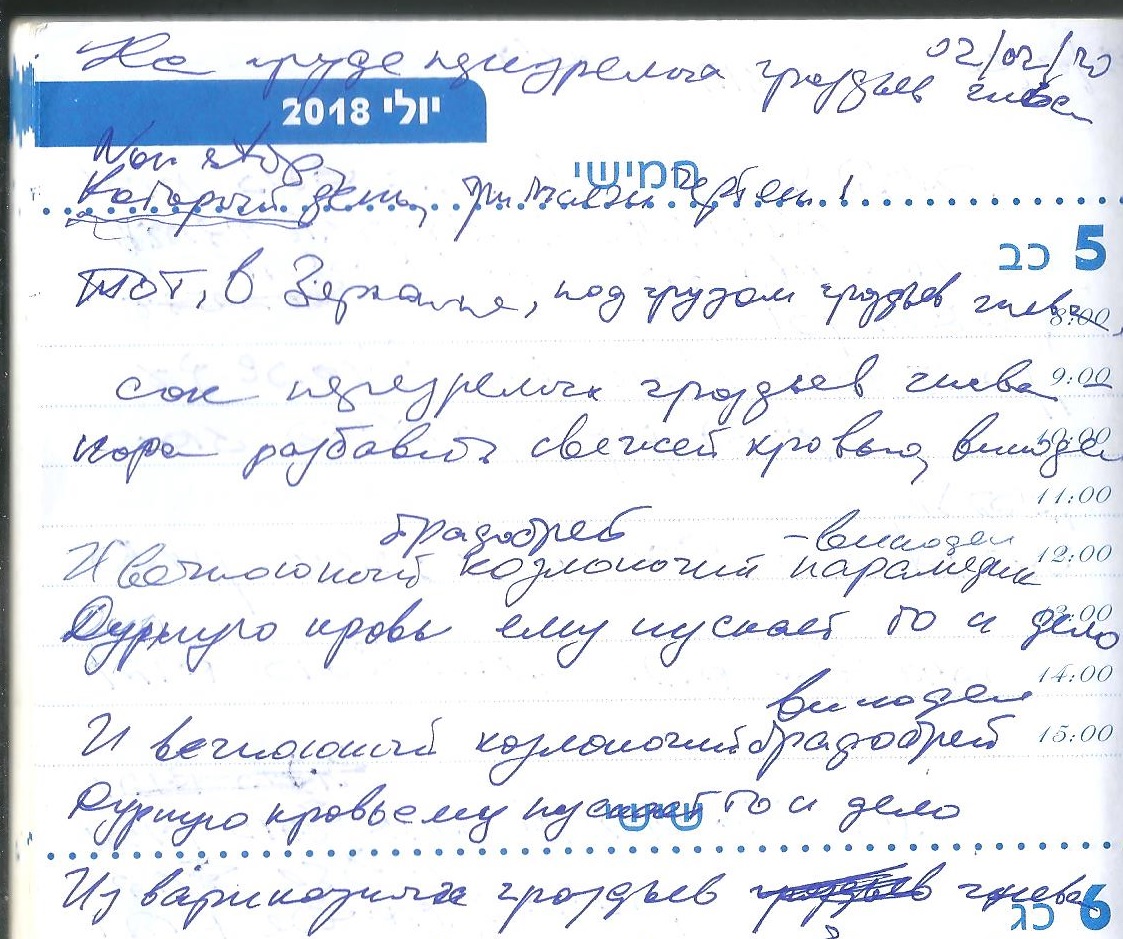 02/02/20
На груде перезрелых гроздьев гнева
יולי 2018
Non stop,
חמישי
Который день, три тысячи чертей!
5 כב
Тот, в Зеркале, под грузом гроздьев гнева,
8:00
сок перезрелых гроздьев гнева 9:00
пора разбавить свежей кровью, винодел
10:00
11:00
брадобрей - винодел
И вечноюный козлоногий парамедик 12:00
Дурную кровь ему пускает то и дело
13:00
14:00
винодел
И вечноюный козлоногий брадобрей 15:00
Дурную кровь ему пускает то и дело
שישי
Из варикозных гроздьев гроздьев гнева
6 כג